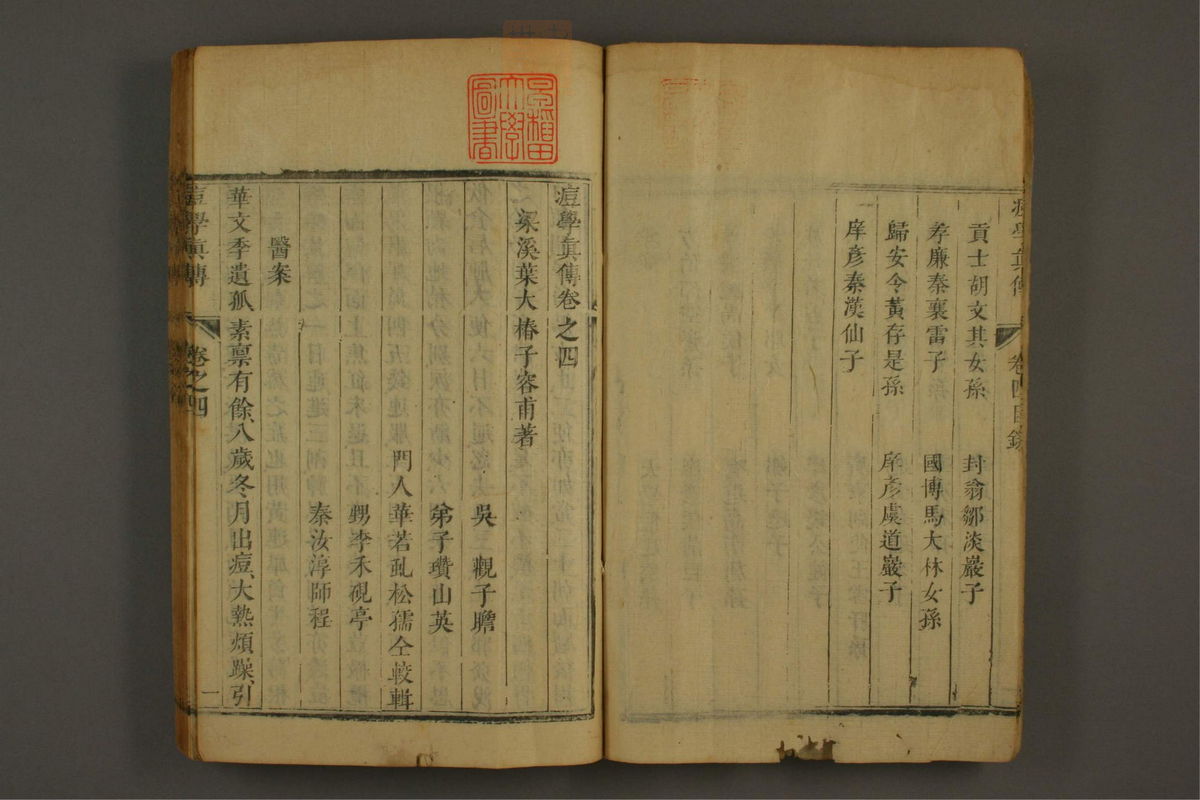 痘學眞傳
卷四目錄
貢士胡文其女孫 封翁鄒淡巖子
孝廉秦襄雷子 國博馬大林女孫
歸安令黃存是孫 庠彥虞道巖子
庠彥秦漢仙子
早稻田大學圖書
痘學眞傳卷之四
梁溪葉大椿子容甫著
吳 觀子瞻
弟子瓚山英
門人華若虬松孺仝較輯
甥李禾硯亭
秦汝淳師程
醫案
華文季遺孤素稟有餘八歲冬月出痘、大熱煩躁、引
痘學眞傳
卷之四
一